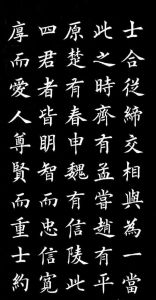 士合從締交相與為一當
此之時齊有孟嘗趙有平
原楚有春申魏有信陵此
四君者皆明智而忠信寬
厚而愛人尊賢而重士約